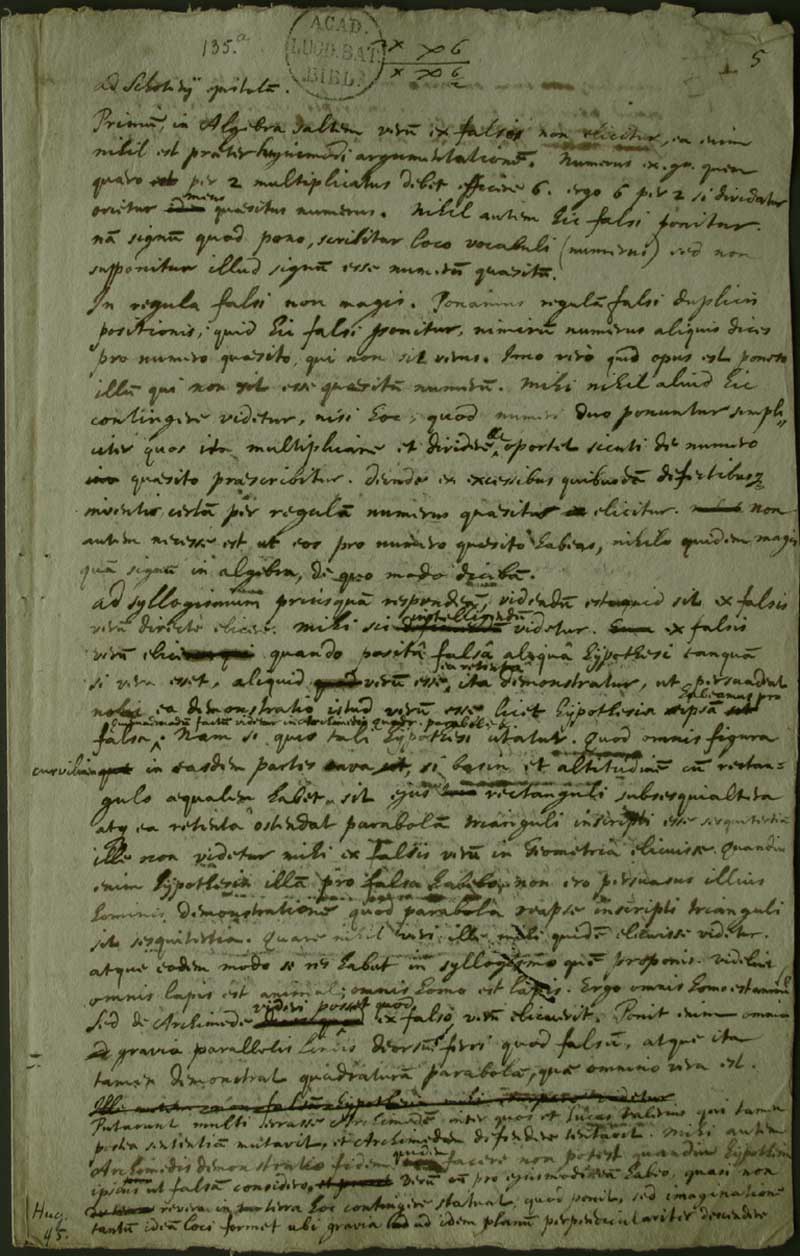 135.a
ACAD.
LUGD. BAT.
BIBL.
x ∞ 6
x ∞ 6
2
5
ad Schotenij epistolam.
Primũ, in Algebra saltem verũ ex falsis non elicitur, ea enim
nihil est præter hujusmodi argumentationẽ. Numerus ex. gr. quem
quæro per 2 multiplicatus debet efficere 6. ergo 6 per 2 si dividatur
orietur meus quæsitus numerus. Nihil autem hic falsi ponitur.
nã signũ quod pono, scribitur loco vocabuli (numerus) sed non
supponitur illud signũ esse numerũ quæsitũ.
In regula falsi non magis. Ponamus regulã falsi duplicis
positionis, quid hic falsi ponitur, nimirũ numerus aliquis dices
pro numero quæsito, qui non sit verus. Imo verò quid opus est ponere
illũ qui non sit esse quæsitũ numerũ. Mihi nihil aliud hic
contingere videtur, nisi hoc, quod numeri duo ponuntur simpli-
citer quos ita multiplicare et dividere &c oportet sicuti de numero
quæsito præscribitur. Deinde ex excessibus quibusdã defectibusq
inventis certã per regulã numerus quæsitus elicitur. non
autem necesse est ut eos pro numero quæsito habeas, nihilo quidem magis
quã signũ in algebra, de quo modo dicebã.
Ad syllogismum priusquã respondeam, videndũ est quid sit ex falsis
verũ directe elicere. Mihi sic intelligendũ videtur. ex falsis
verũ elici quando positâ falsâ aliquâ hypothesi tanquã
si vera esset, aliquid verũ esse, ea retenta ita demonstratur, ut persuadeat
nobis ea demonstratio istud verũ esse licet hypothesin ipsã habeamus pro
falsa. quemadmodũ factũ videtur in Archimedis quadr. parabolæ.
Nam si quis tali hypothesi utatur. Quod omnis figura
curvilinea in easdem partes cava, si basin et altitudinẽ cũ rectan-
gulo æqualem habet, sit ejus rectanguli subsesquialtera
atq ea retenta ostendat parabolã trianguli inscripti esse sesquitertiã
ille non videtur mihi ex falsis verũ in Geometria elicuisse. Quandiu
enim hypothesin illã pro falsa habebo, non ero persuasus illius
hominis demonstratione quod parabola reapse inscripti trianguli
sit sesquitertia. Quare nihil veri ille mihi quidẽ elicuisse videtur.
atque eodem modo se res habet in syllogismo quẽ proponis. videlicet
omnis lapis est animal; omnis homo est lapis. Ergo omnis homo est animal.
Sed de Archimede videri posset quod ex falso verũ elicuerit. Ponit enim omnia
gravia parallelis lineis deorsũ ferri quod falsũ, atque ita
tamen demonstrat quadraturã parabolæ, quæ omnino vera est.
Putarunt multi errasse Archimedẽ inter quos et Lucas Valerius qui tamen
postea sententiã mutavit, et Archimedem defendere tentavit. Mihi autem
Archimedis demonstratio fidem quidem facere non potest quandiu hypothesin
ipsius ut falsã considero, verũ eã pro ejusmodi non habeo, quasi non
revera in terra hoc contingere statuat, quod ponit, sed imaginatione
tantũ ideã loci formet ubi gravia ad idem planũ perpendiculariter descendere
Hug.
45.